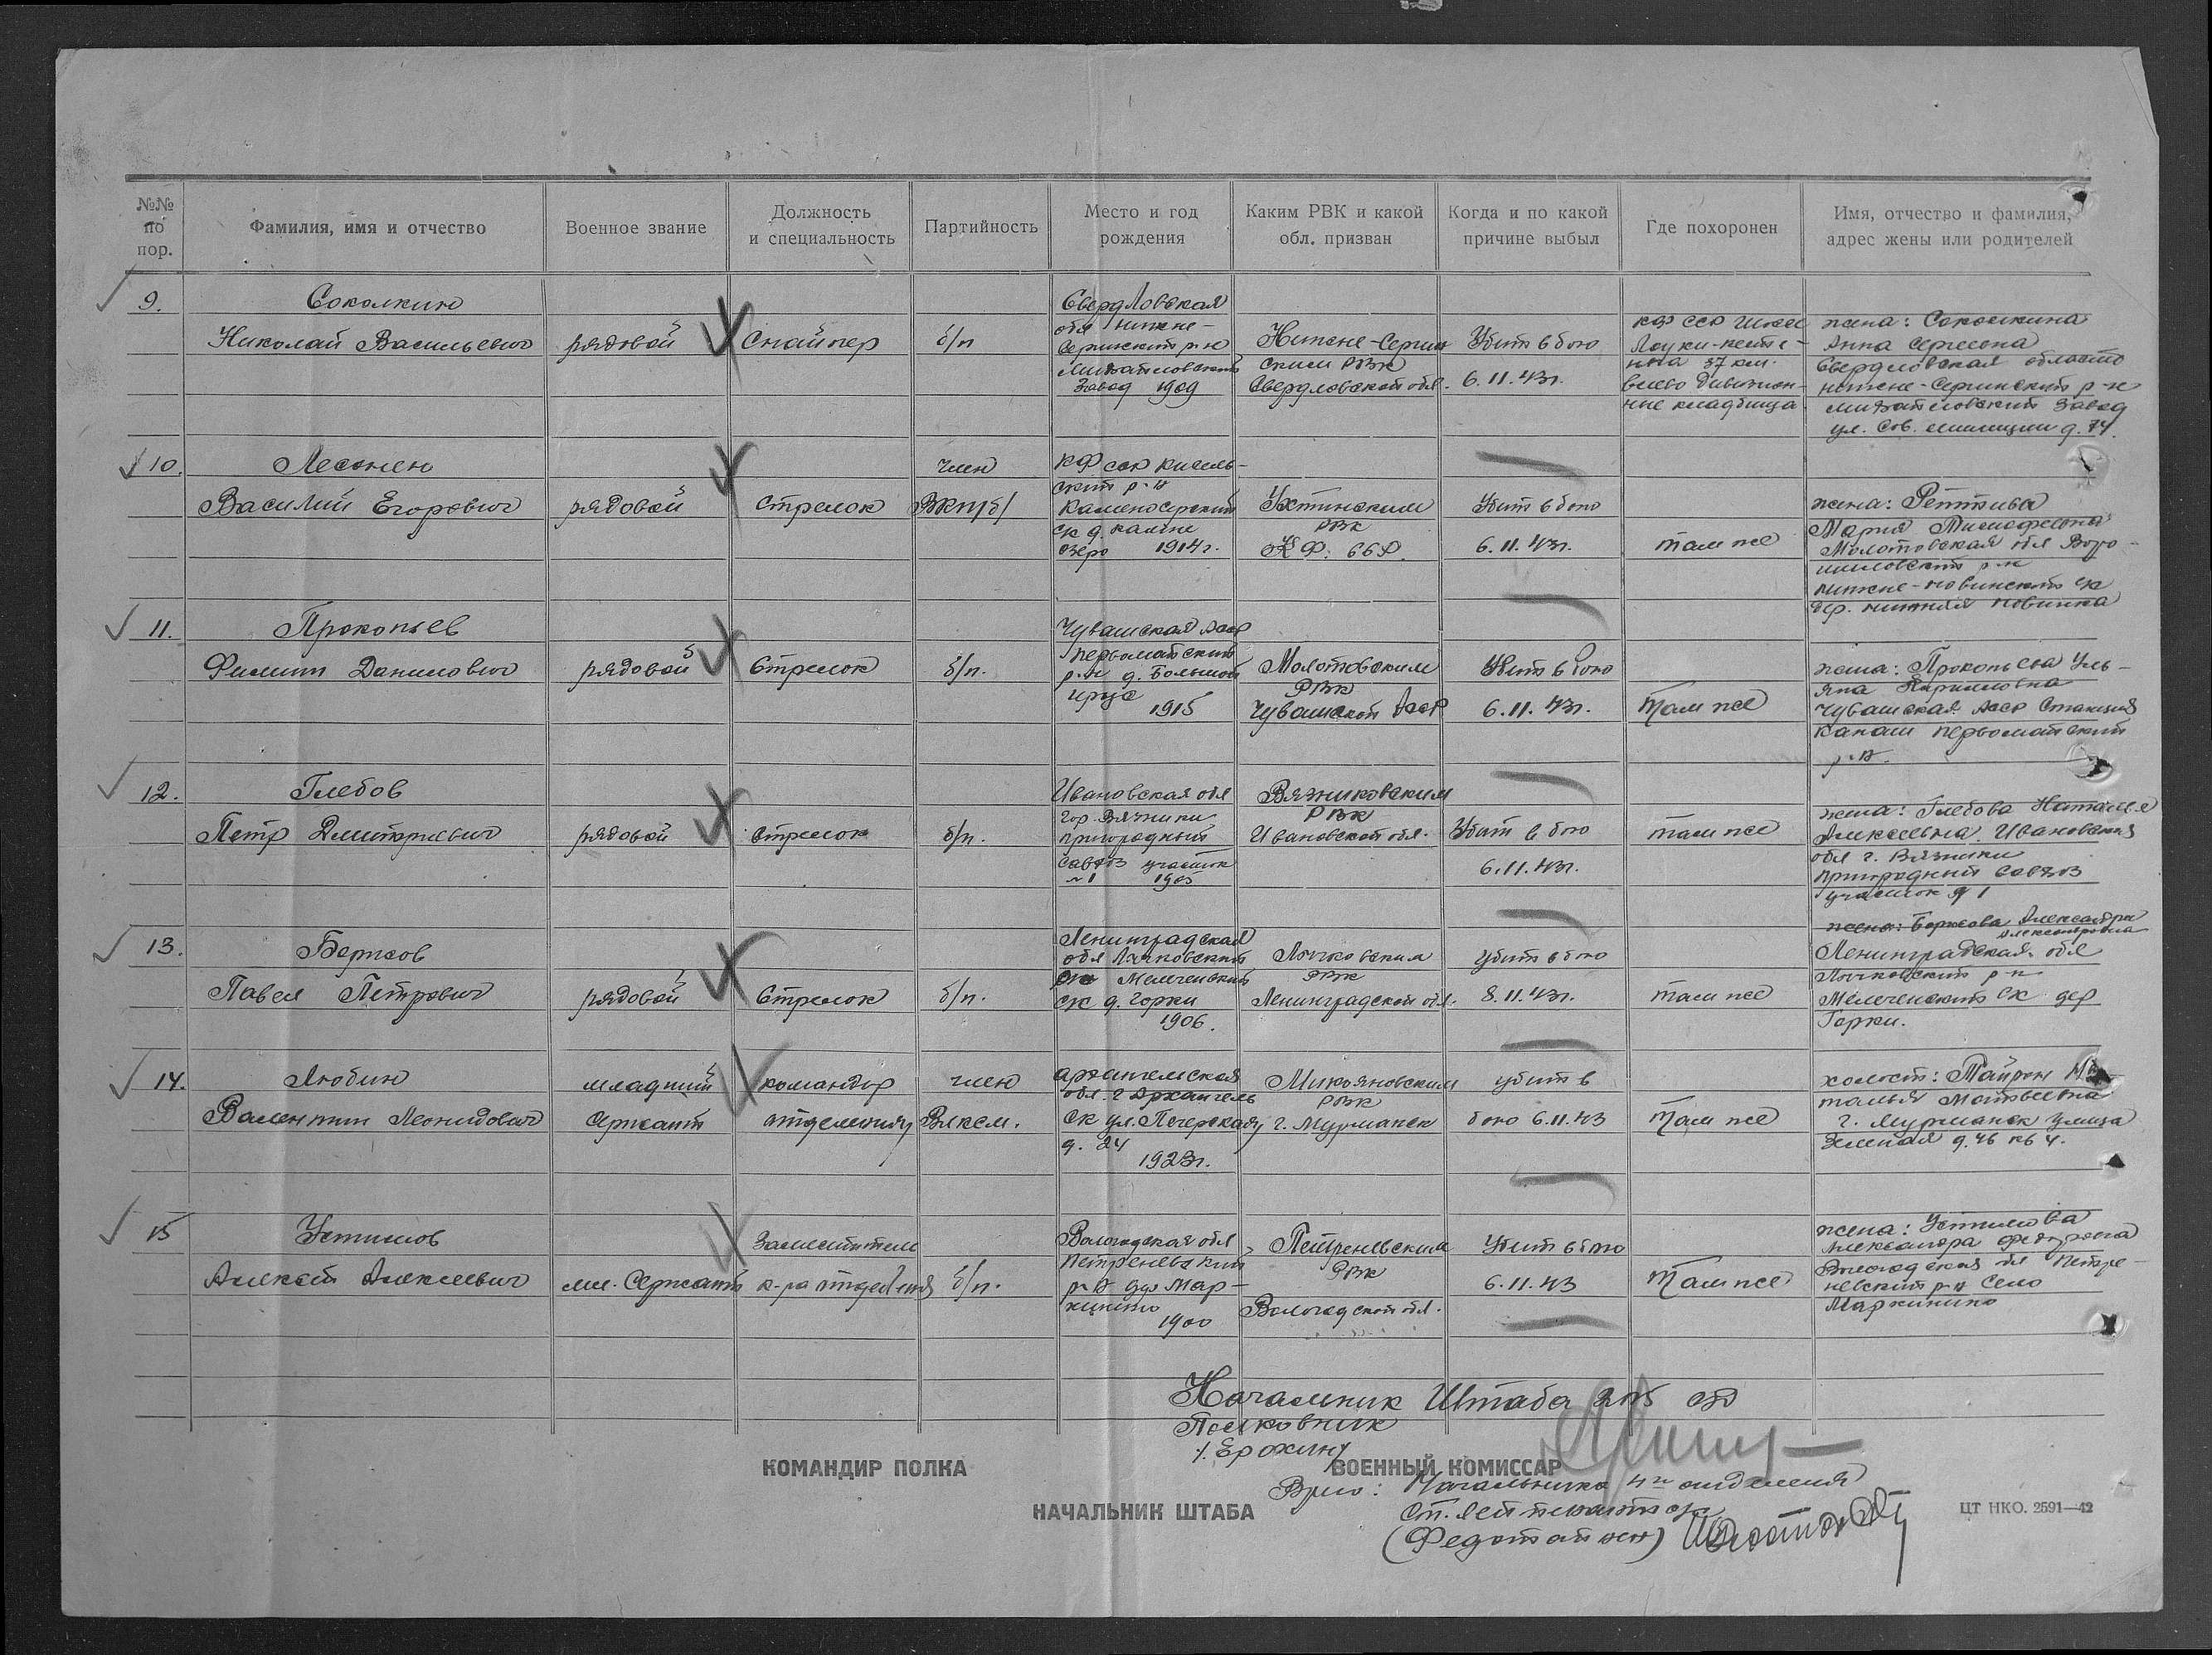 №№ по пор.
Фамилия, имя и отчество
Военное звание
Должность и специальность
Партийность
Место и год рождения
Каким РВК и какой обл. призван
Когда и по какой причине выбыл
Где похоронен
Имя, отчество и фамилия, адрес жены или родителей
9.
Соколкин
Николай Васильевич
рядовой
Снайпер
б/п
Свердловская
обл Нижне-
Сергинский р-н
Михайловский
Завод 1909
Нижне-Сергин
ским РВК
Свердловской обл.
Убит в бою
6.11.43г.
КФ ССР шоссе
Лоухи-Кесте-
нга 37 км.
влево дивизион-
ние кладбища
жена: Соколкина
Анна Сергеевна
Свердловская область
Нижне-Сергинский р-н
Михайловский завод
ул. Сов. милиции д. 74.
10.
Лесонен
Василий Егорович
рядовой
Стрелок
член
ВКП/б/
КФ сср
ский р-н
озеро 1914г.
Ухтинским
РВК
КФ. ССР.
Убит в бою
6.11.43г.
там же
жена:
Мария
Молотовская обл Воро-
шиловский р-н
11.
Прокопьев
Филипп Данилович
рядовой
Стрелок
б/п.
Чувашская Асср
первомайский
р-н д. Большой
1915
Молотовским
РВК
Чувашской Асср
Убит в бою
6.11.43г.
Там же
жена: Прокопьева Уль-
яна
Чувашская Асср Станция
Канаш первомайский
р-н.
12.
Глебов
Петр Дмитриевич
рядовой
Стрелок
б/п.
Ивановская обл
гор. Вязники
пригородный
участок
№1 1905
Вязниковским
РВК
Ивановской обл.
Убит в бою
6.11.43г.
там же
жена: Глебова Наталья
Алексеевна. Ивановская
обл г. Вязники
Пригородный
участок № 1
13.
Борисов
Павел Петрович
рядовой
Стрелок
б/п.
Ленинградская
обл Лычковский
ск д. Горки
1906.
Лычковским
РВК
Ленинградской обл.
убит в бою
8.11.43г.
там же
жена: Борисова Александра
Александровна
Ленинградская обл
Лычковский р-н
ск дер
Горки.
14.
Любин
Валентин Леонидович
младший
Сержант
командир
отделения
член
Влксм.
архангельская
обл. г Архангель
ск ул. Печерская
д. 24
1923г.
Микояновским
РВК
г. Мурманск
убит в
бою 6.11.43
Там же
холост:
Матвеевна
г. Мурманск улица
д. 46 кв 4.
15
Устинов
Алексей Алексеевич
мл. Сержант
Заместитель
к-ра отделения
б/п.
Вологодская обл
Петреневский
р-н дер Мар-
1900
Петреневским
РВК
Вологодской обл.
Убит в бою
6.11.43
Там же
жена: Устинова
Александра Федоровна
Вологодская обл Петре-
невский р-н Село
Начальник Штаба 205 сд
Полковник
/. Ерохин/
КОМАНДИР ПОЛКА
ВОЕННЫЙ КОМИССАР
Врио: Начальника 4го отделения
НАЧАЛЬНИК ШТАБА
Ст. лейтенант
ЦТ НКО. 2591—42